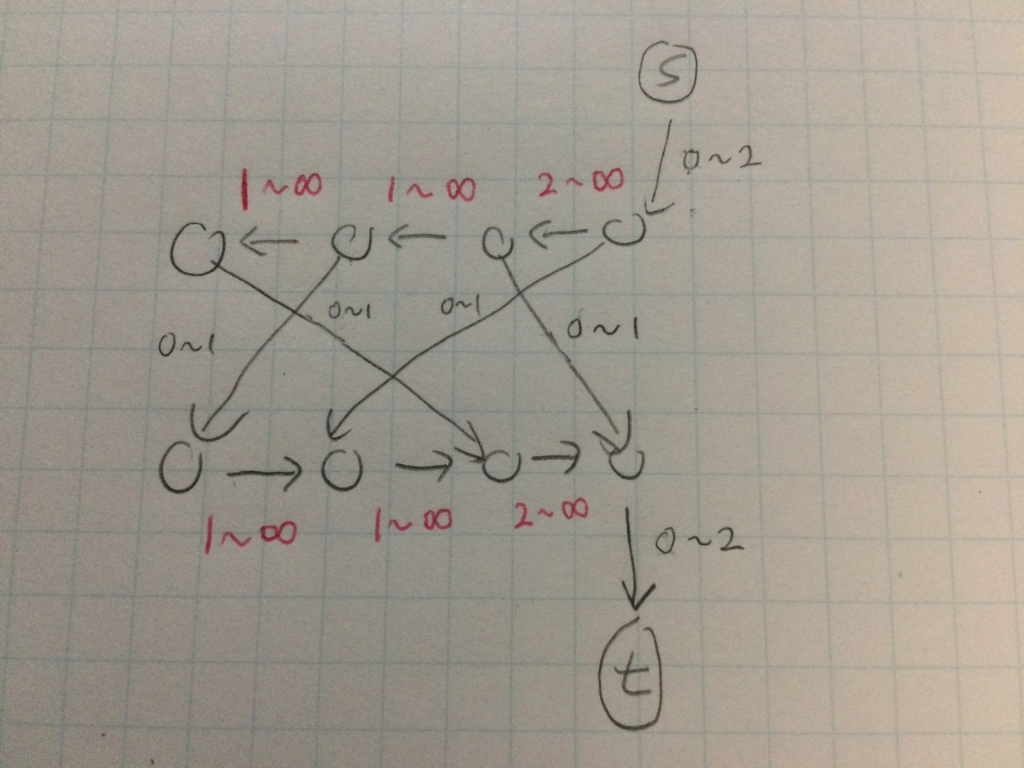 S
0~2
1~∞ 1~∞ 2~∞
0~1 0~1 0~1 0~1
1~∞ 1~∞ 2~∞
0~2
t